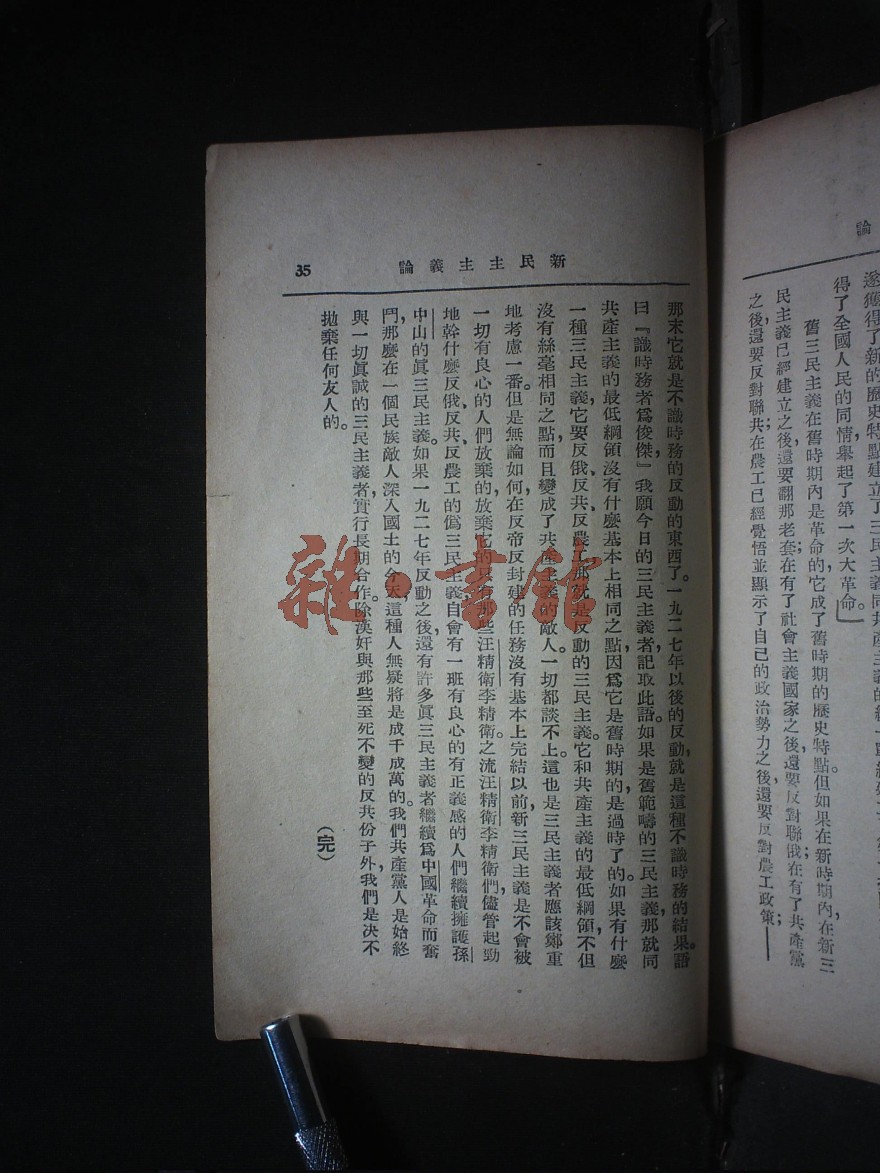 論
遂獲得了新的歷史特點建立了三民主義同共
得了全國人民的同情，舉起了第一次大革命。」
舊三民主義在舊時期內是革命的，它成了舊時期的歷史特點。但如果在新時期內，在新三
民主義已經建立之後，還要翻那老套；在有了社會主義國家之後，還要反對聯俄；在有了共產黨
之後，還要反對聯共；在農工已經覺悟並顯示了自己的政治勢力之後，還要反對農工政策；——
新民主主義論
35
那末它就是不識時務的反動的東西了。一九二七年以後的反動，就是這種不識時務的結果。語
曰：『識時務者爲俊傑』，我願今日的三民主義者記取此語。如果是舊範疇的三民主義，那就同
共產主義的最低綱領沒有什麼基本上相同之點，因爲它是舊時期的，是過時了的。如果有什麼
一種三民主義，它要反俄、反共、反農工，那就是反動的三民主義。它和共產主義的最低綱領不但
沒有絲毫相同之點，而且變成了共產主義的敵人。一切都談不上。這也是三民主義者應該鄭重
地考慮一番。但是無論如何，在反帝反封建的任務沒有基本上完結以前，新三民主義是不會被
一切有良心的人們放棄的，放棄它的只有那些汪精衛李精衛之流。汪精衛李精衛們，儘管起勁
地幹什麼反俄、反共、反農工的僞三民主義，自會有一班有良心的有正義感的人們繼續擁護孫
中山的眞三民主義。如果一九二七年反動之後，還有許多眞三民主義者繼續爲中國革命而奮
鬥，那麼在一個民族敵人深入國土的今天，這種人無疑將是成千成萬的。我們共產黨人是始終
與一切眞誠的三民主義者，實行長期合作。除漢奸與那些至死不變的反共份子外，我們是決不
拋棄任何友人的。
（完）
雜·書館